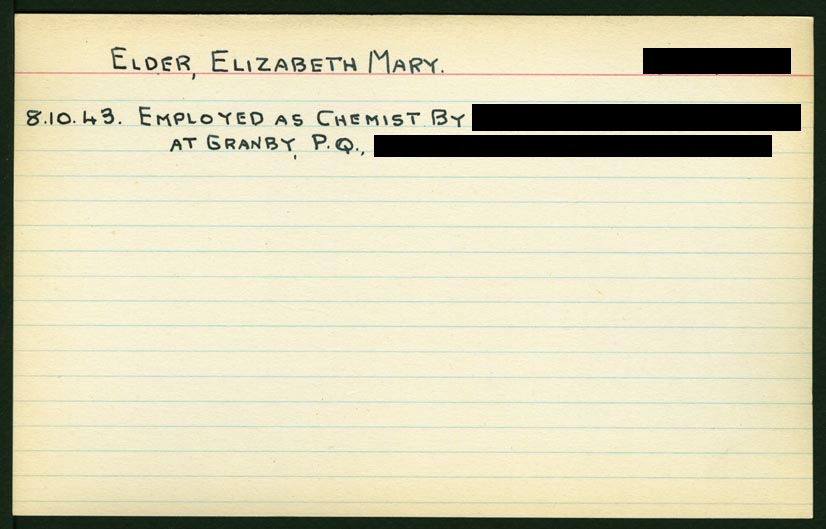 ELDER, ELIZABETH MARY.
8.10.43. EMPLOYED AS CHEMIST BY
AT GRANBY, P.Q.,